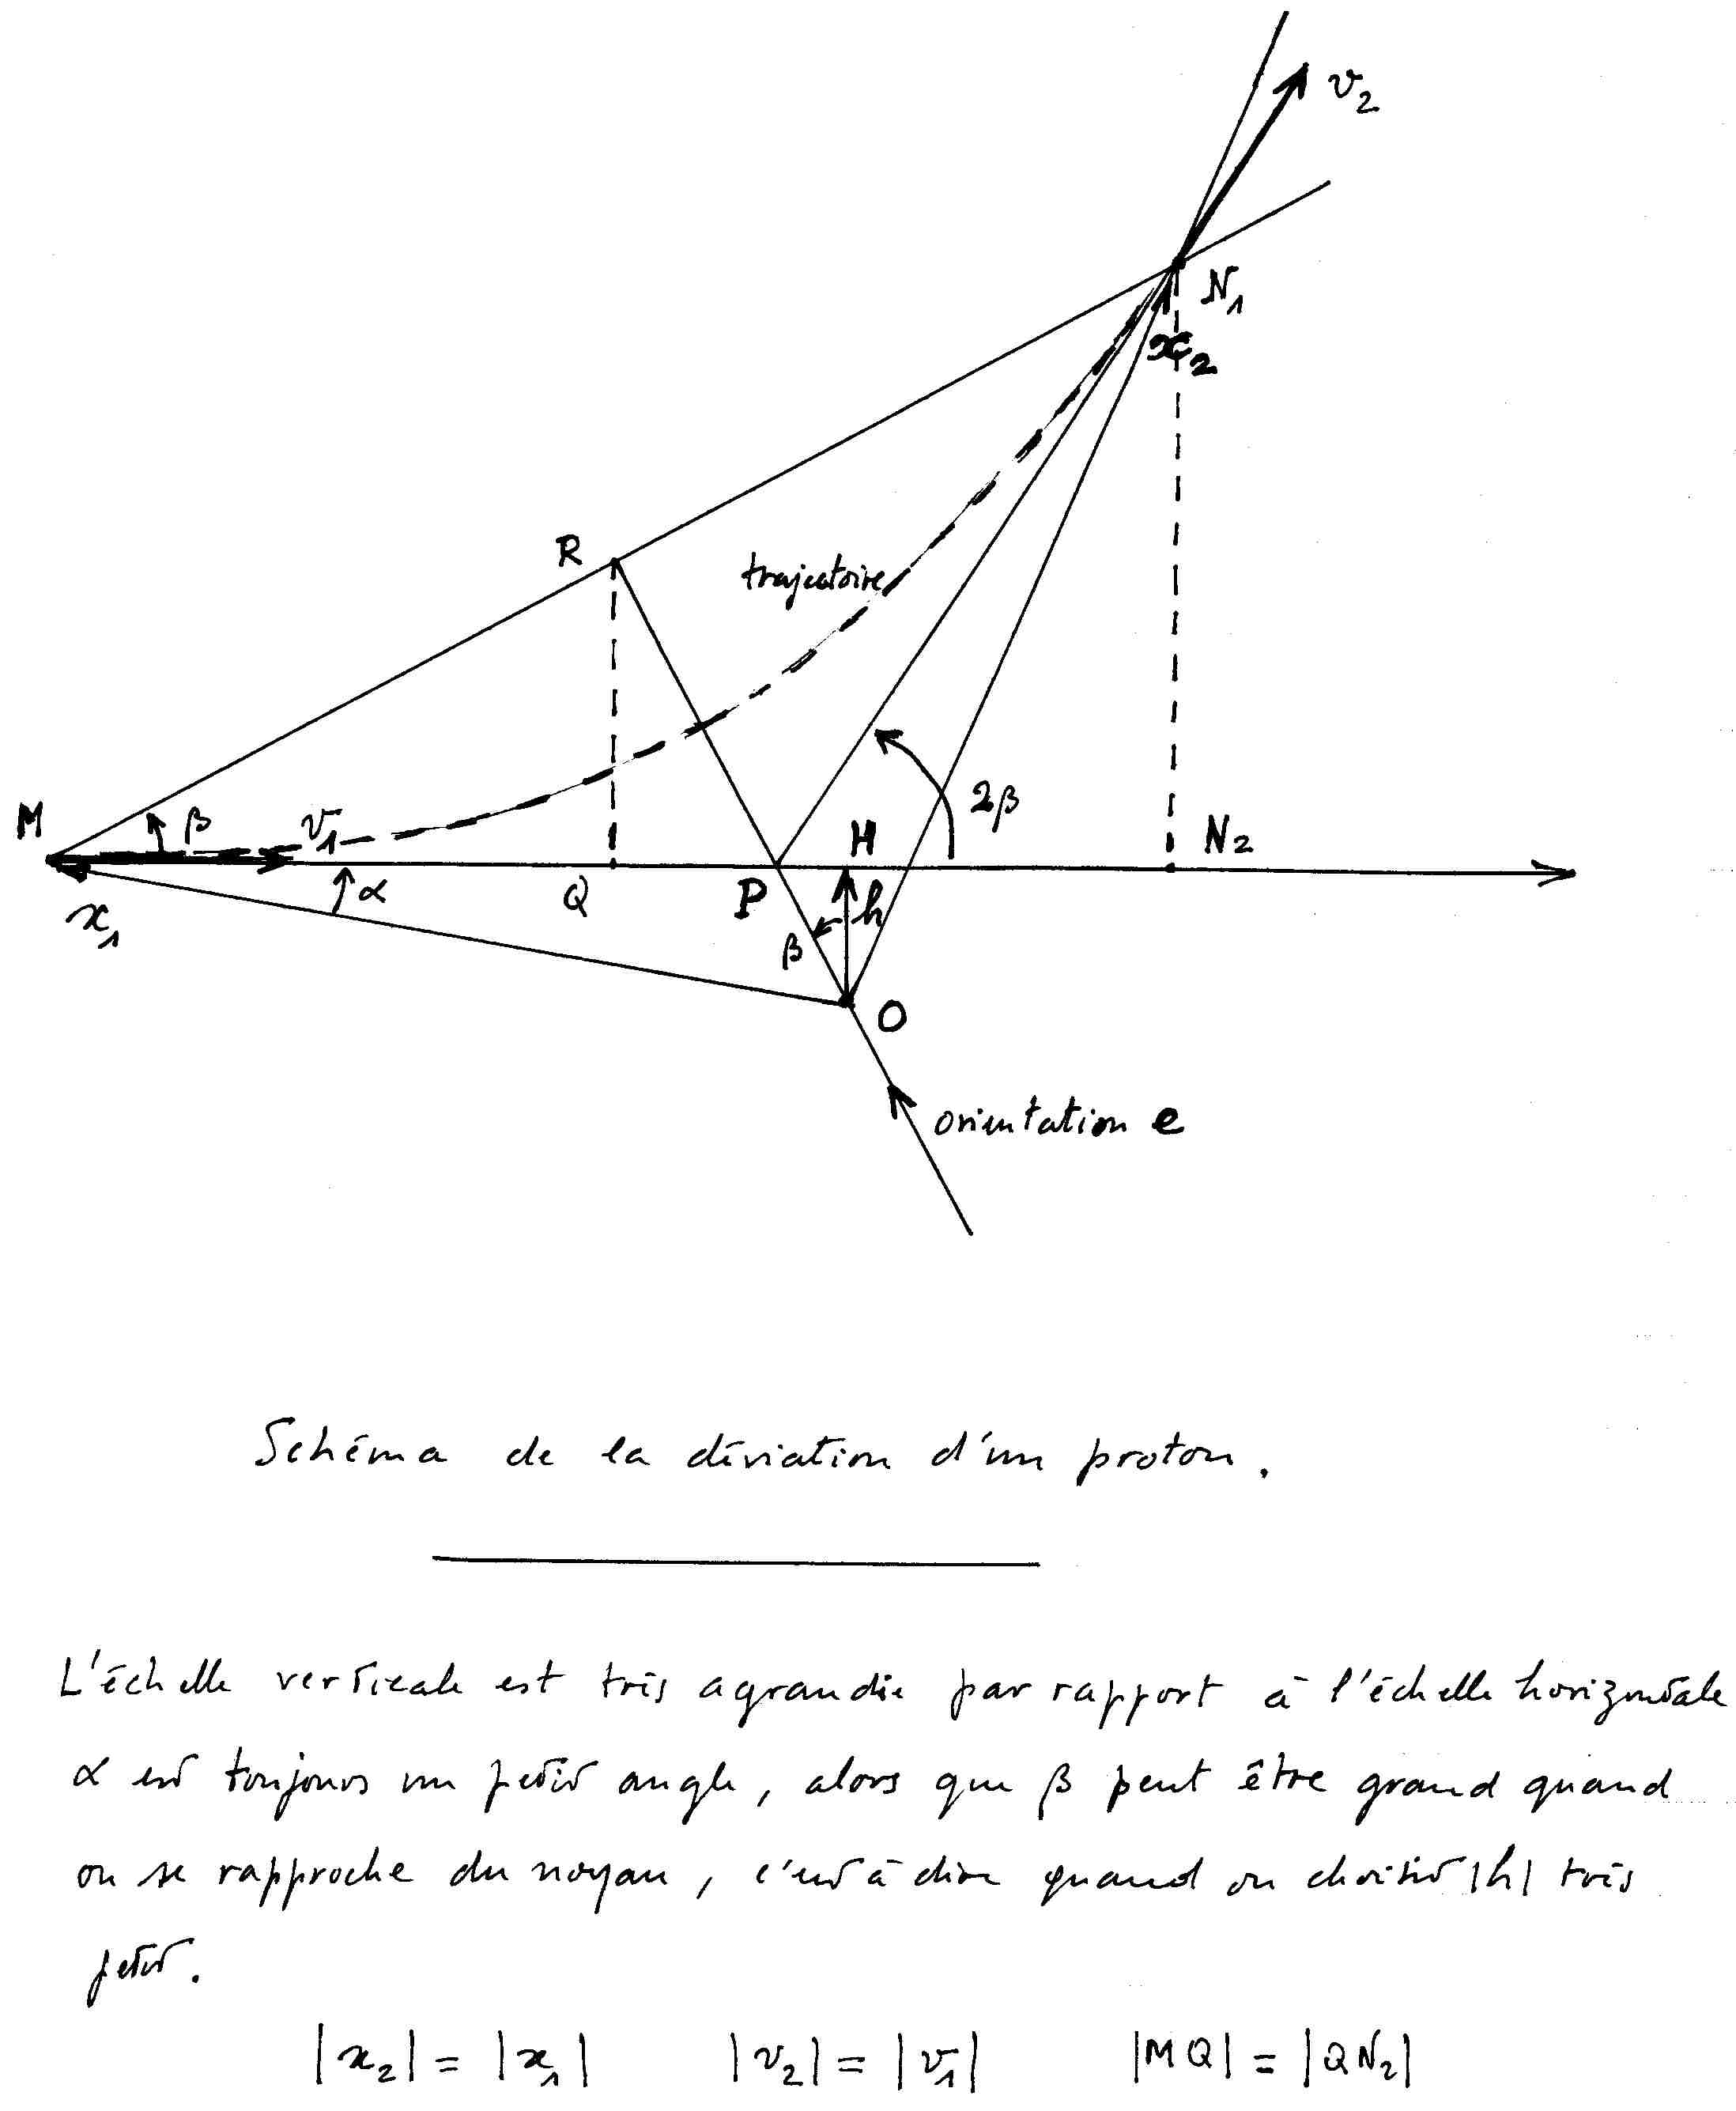 v₂
N₁
x₂
R
trajectoire
M
β
v₁
H
2β
N₂
α
Q
P
h
x₁
β
O
orientation e
Schéma de la déviation d'un proton.
L'échelle verticale est très agrandie par rapport à l'échelle horizontale
α est toujours un petit angle, alors que β peut être grand quand
on se rapproche du noyau, c'est à dire quand on choisit |h| très
petit.
|x₂| = |x₁| |v₂| = |v₁| |MQ| = |QN₂|